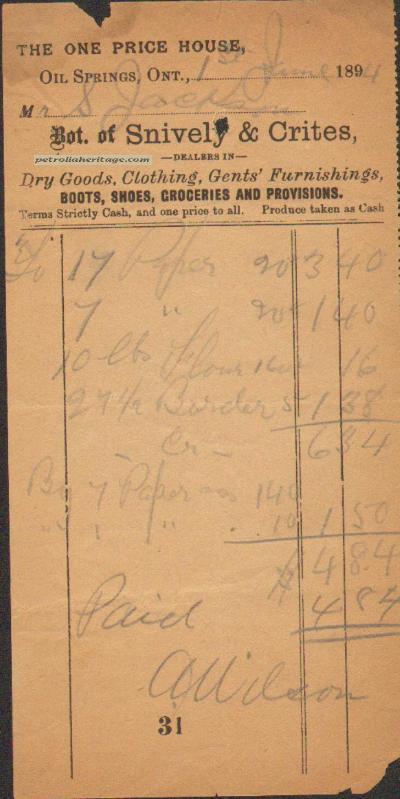 THE ONE PRICE HOUSE,
OIL SPRINGS, ONT., 1st June 1894
Mr S Jackson
Bot. of Snively & Crites,
petroliaheritage.com
—DEALERS IN—
Dry Goods, Clothing, Gents' Furnishings,
BOOTS, SHOES, GROCERIES AND PROVISIONS.
Terms Strictly Cash, and one price to all. Produce taken as Cash
To 17 Paper 20 3 40
7 " 20 1 40
10 lbs Flour 16
27½ Border 5 1 38
— Cr — 6 34
By 7 Paper 140
" 1 " 10 1 50
4 84
Paid 4 84
A Wilson
31